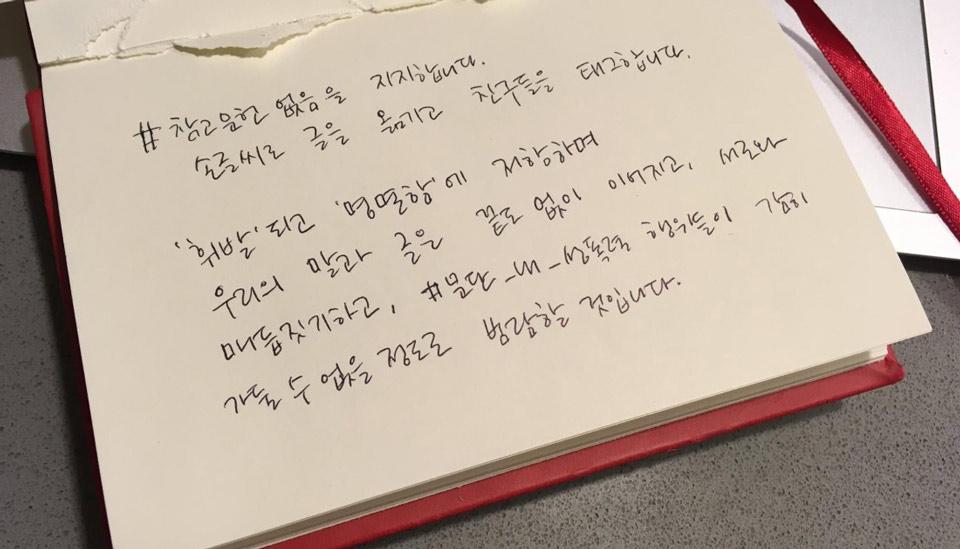 #참고문헌 없음을 지지합니다.
손글씨로 글을 옮기고 친구들을 태그합니다.
'휘발'되고 '명멸함'에 저항하며
우리의 말과 글은 끝도 없이 이어지고, 서로와
매듭짓기하고, #문단_내_성폭력 행위들이 감히
가둘 수 없을 정도로 범람할 것입니다.